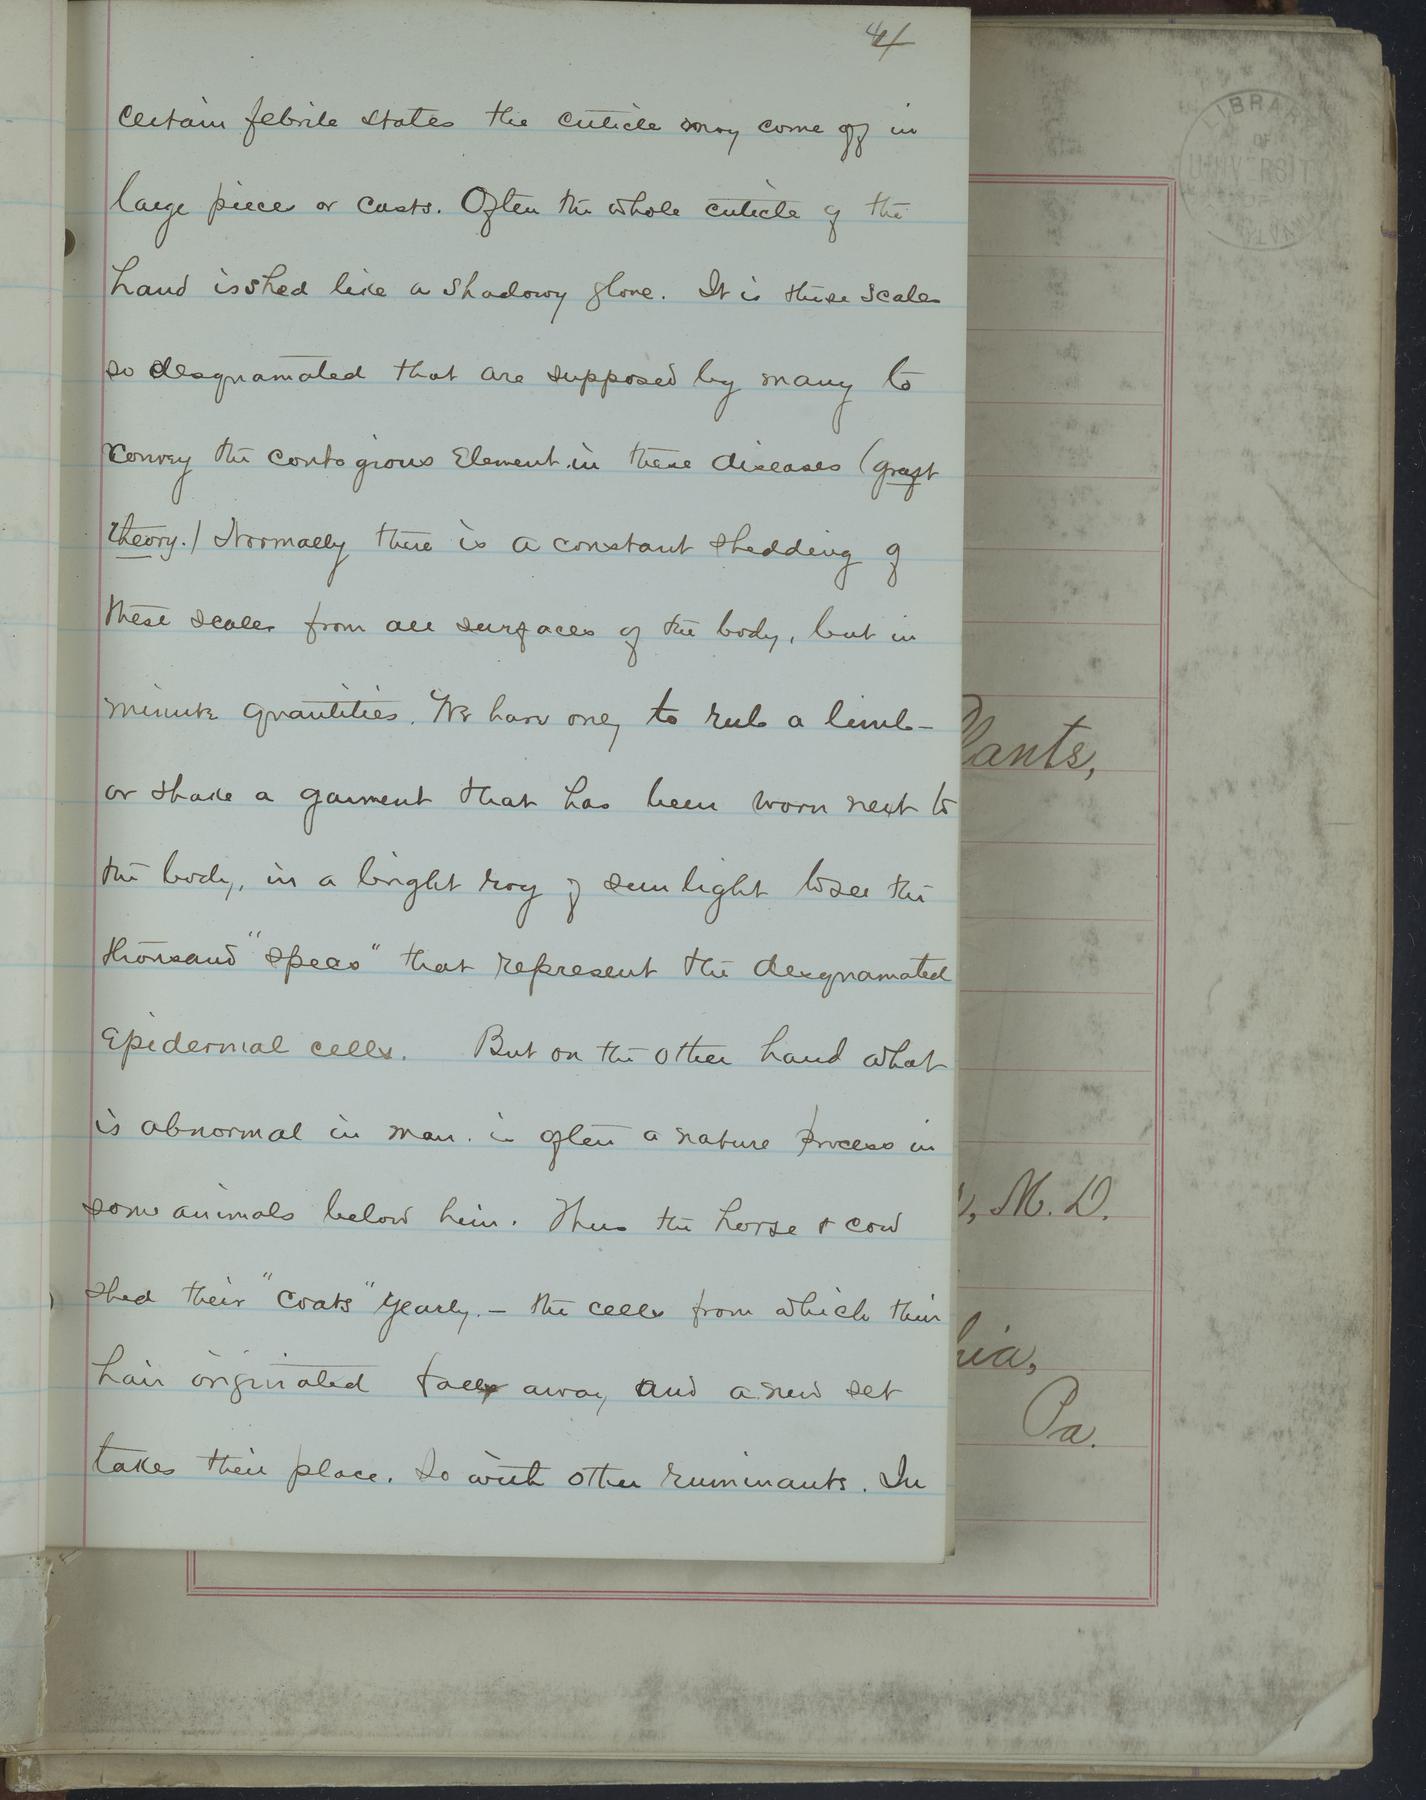 4
certain febrile states the cuticle may come off in
large pieces or casts. Often the whole cuticle of the
hand is shed like a shadowy glove. It is these scales
so desquamated that are supposed by many to
convey the contagious Element in these diseases (graft
theory.) Normally there is a constant shedding of
these scales from all surfaces of the body, but in
minute quantities. We have only to rub a limb -
or shake a garment that has been worn next to
the body, in a bright ray of sun light to see the
thousand "specs" that represent the desquamated
Epidermal cells. But on the other hand what
is abnormal in man is often a nature process in
some animals below him. Thus the horse & cow
shed their "coats" yearly. - the cells from which their
hair originated fall away and a new set
takes their place. So with other ruminants. In
LIBRARY
OF
UNIVERSITY
OF
Plants,
M. D.
hia,
Pa.